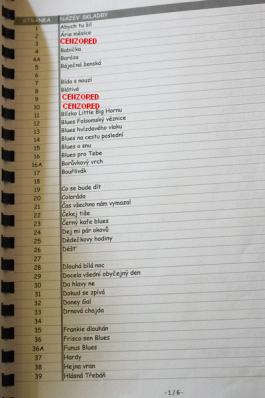 STRÁNKA NÁZEV SKLADBY
1 Abych tu žil
2 Ária měsíce
3 CENZORED
4 Babička
4A Baroza
5 Báječná ženská
6
7 Bída s nouzí
8 Blátivá
9 CENZORED
10 CENZORED
11 Blízko Little Big Hornu
12 Blues Folsomský věznice
13 Blues hvízdavého vlaku
14 Blues na cestu poslední
15 Blues o snu
16 Blues pro Tebe
16A Borůvkový vrch
17 Bouřlivák
18
19 Co se bude dít
20 Colorádo
21 Čas všechno nám vymazal
22 Čekej tiše
23 Černý kafe blues
24 Dej mi pár okovů
25 Dědečkovy hodiny
26 Déšť
27
28 Dlouhá bílá noc
29 Docela všední obyčejný den
30 Do hlavy ne
31 Dokud se zpívá
32 Doney Gal
33 Drnová chajda
34
35 Frankie dlouhán
36 Frisco sen Blues
36A Funus Blues
37 Hardy
38 Hejna vran
39 Hlásná Třebáň
-1/6-